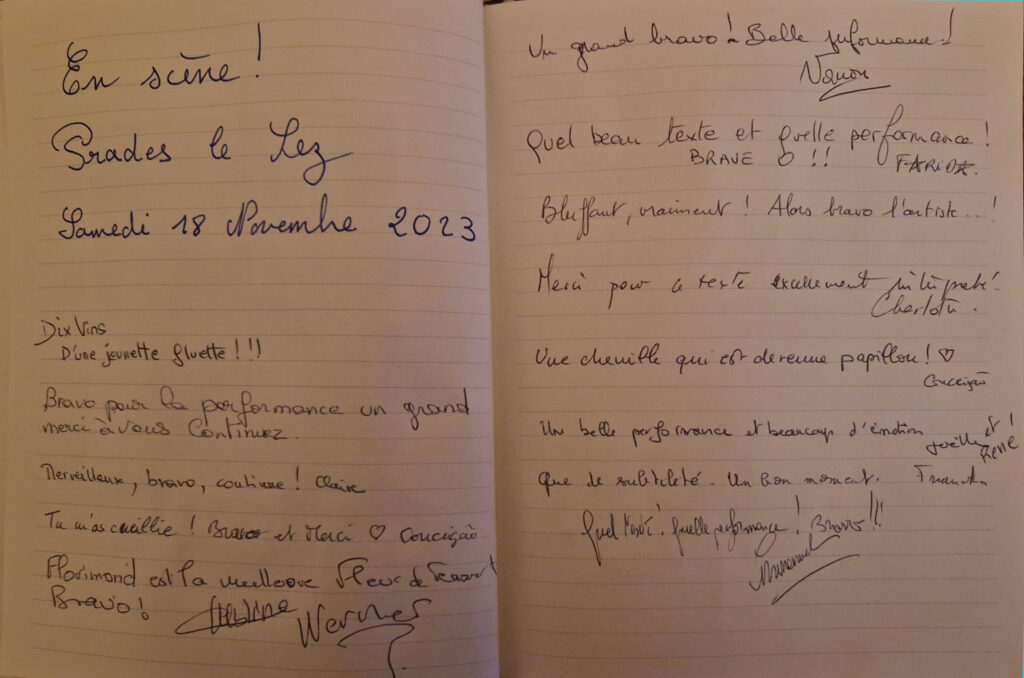 En scène !
Prades le Lez
Samedi 18 Novembre 2023
Dix Vins
D'une jeunette fluette ! !!
Bravo pour la performance un grand
merci à vous Continuez.
Merveilleux, bravo, continue ! Claire
Tu m'as cueillie ! Bravo et Merci ♡ Conceição
Florimond est la meilleure Fleur de
Bravo !
Un grand bravo ! Belle performance !
Quel beau texte et quelle performance !
BRAVE O !! FARIDA.
Bluffant, vraiment ! Alors bravo l'artiste...!
Merci pour ce texte excellement interprété.
Charlotte.
Une chenille qui est devenue papillon ! ♡
Conceição
Un belle performance et beaucoup d'émotion
Joëlle et René !
Que de subtileté. Un bon moment.
Quel texte ! Quelle performance ! Bravo !!!